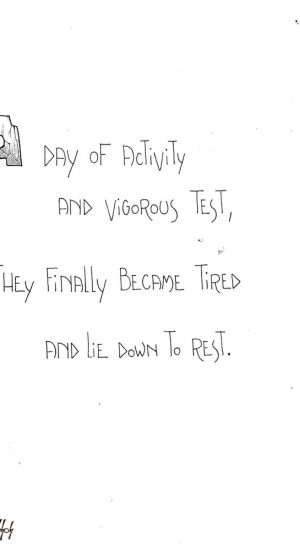 A DAY OF ACTIVITY
AND VIGOROUS TEST,
THEY FINALLY BECAME TIRED
AND LIE DOWN TO REST.